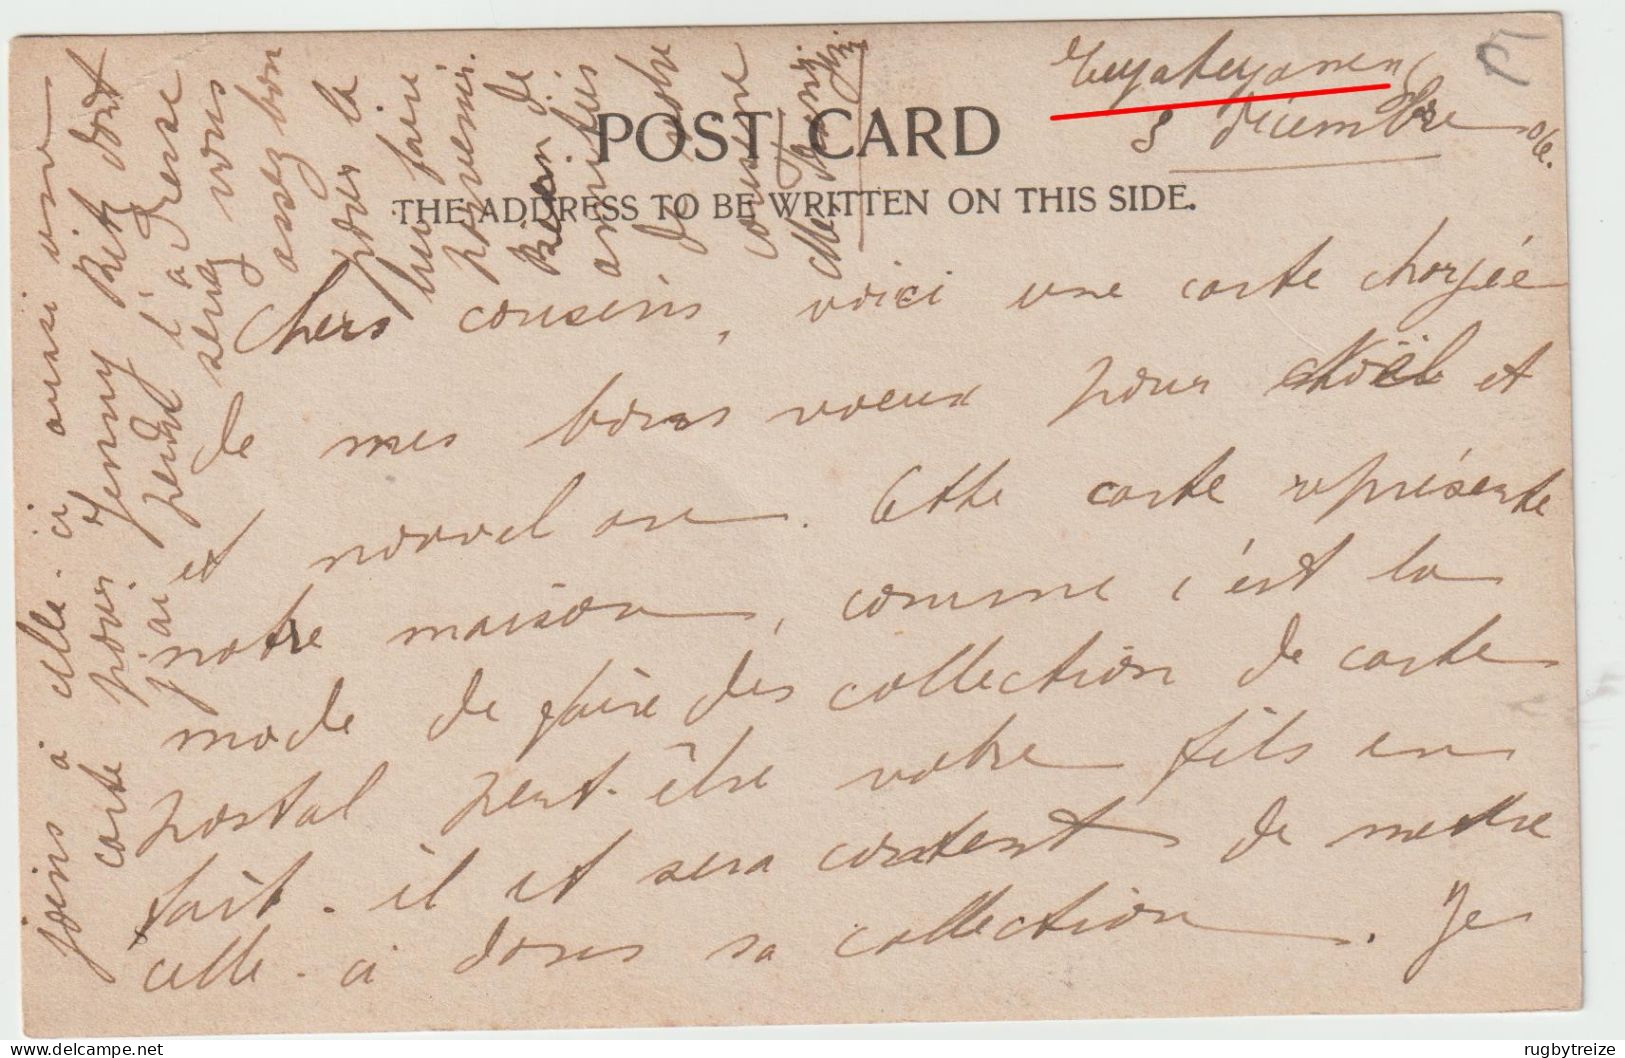 8 décembre 06.
POST CARD
THE ADDRESS TO BE WRITTEN ON THIS SIDE.
Chers cousins, voici une carte chargée
de mes bons voeux pour Noël et
et nouvel an. Cette carte représente
notre maison, comme c'est la
mode de faire des collection de carte
postal peut-être votre fils en
fait-il et sera content de mettre
celle-ci dans sa collection. Je
joins à celle-ci aussi une
carte pour Jenny Ritz dont
j'ai perdu l'adresse
serez vous
assez bon
pour la
lui faire
parvenir.
Bien de
amitiés
de votre
cousine
delcampe.net
rugbytreize